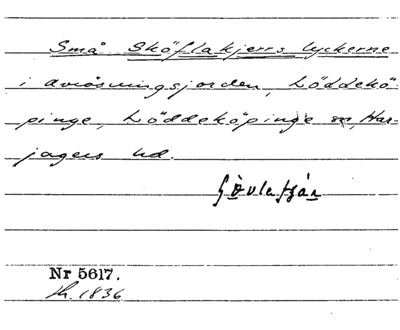 Små Sköflakjerrs lyckerne
i avrösningsjorden, Löddekö-
pinge, Löddeköpinge sn, Har-
jagers hd.
Nr 5617.
1836